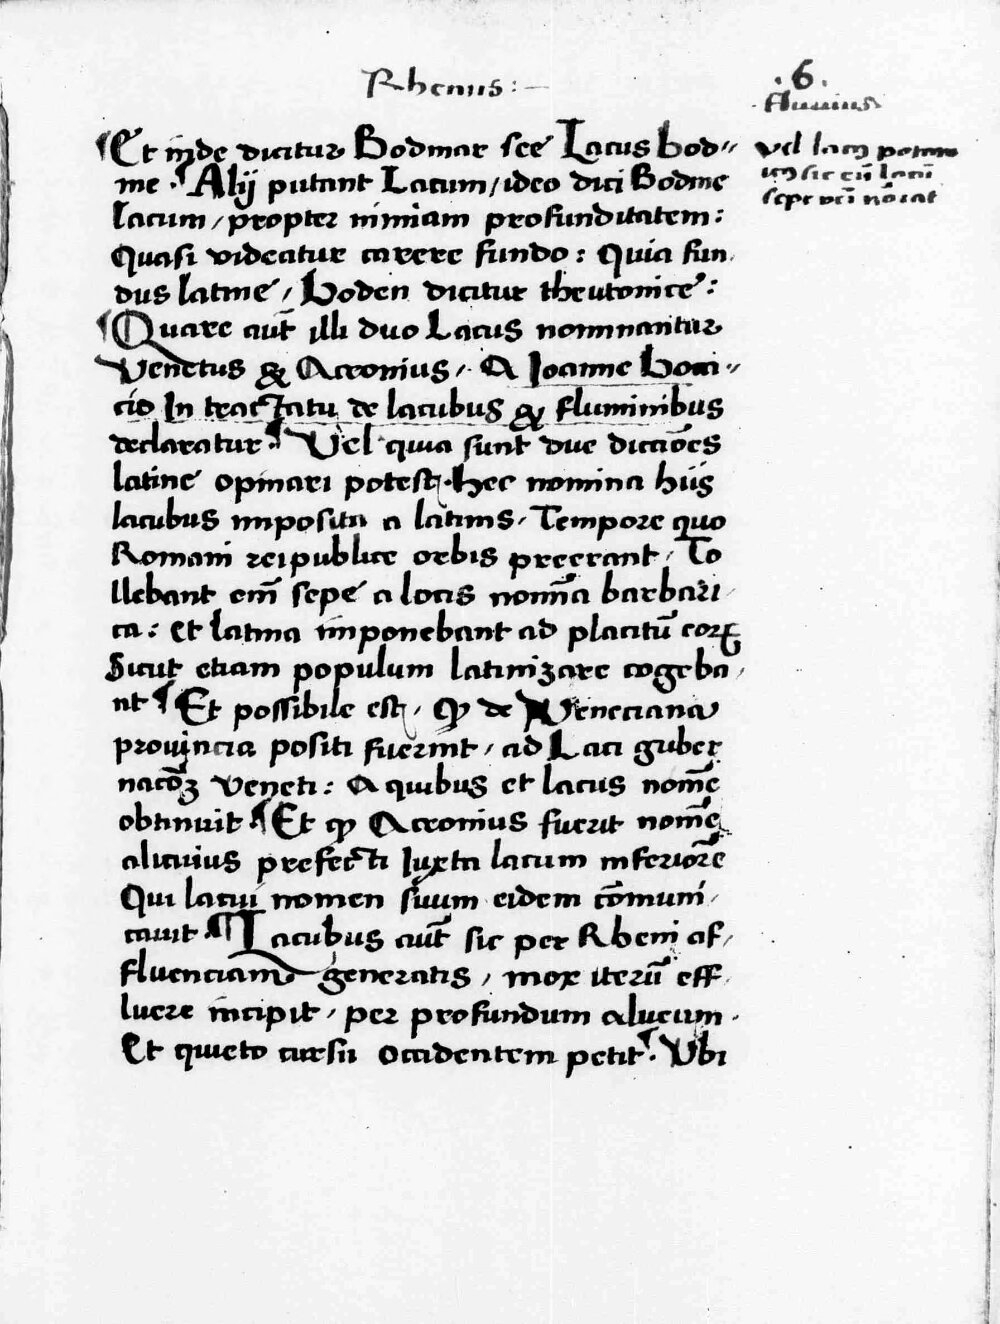 Rhenus:
.6.
fluuius
¶Et inde dicitur Bodmar see Lacus bod=
me. ¶Alij putant Lacum/ ideo dici Bodme
lacum/ propter nimiam profunditatem:
Quasi videatur carere fundo: Quia fun-
dus latine/ Boden dicitur theutonice:
¶Quare aut̄ illi duo Lacus nominantur
Venetus & Acronius/. A Joanne bocca=
cio In tractatu de lacubus & fluminibus
declaratur ¶ Vel quia sunt due dicciōes
latine opinari potest. hec nomina hiis
lacubus imposita a latinis. Tempore quo
Romani reipublice orbis preerant. To
llebant em̄ sepe a locis nomīa barbari-
ca: et latina imponebant ad placitū eorꝝ
Sicut etiam populum latinizare cogeba-
nt ¶ Et possibile est, ꝙ de Veneciana
prouincia positi fuerint/ ad Laci guber
nacōꝫ veneti: A quibus et lacus nomē
obtinuit ¶ Et ꝙ Acronius fuerit nomē
alicuius prefecti Juxta lacum inferiorē
Qui lacui nomen suum eidem cōmuni-
cauit. ¶Lacubus aut̄ sic per Rheni af-
fluenciam generatis/ mox iterū eff-
luere incipit/ per profundum alueum.
Et quieto cursu occidentem petit. Vbi
vel
sic
sepe